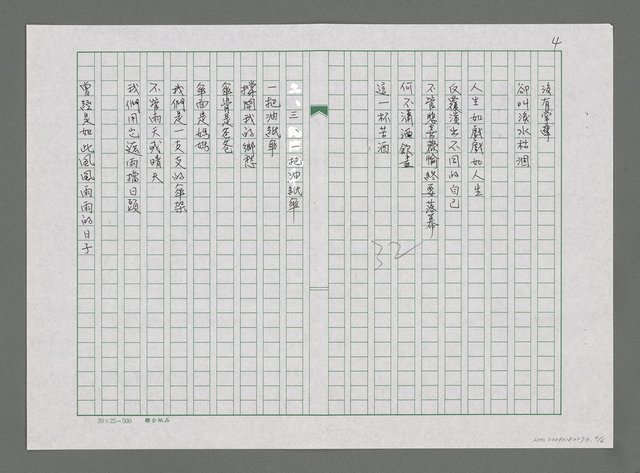 4
沒有掌聲
卻叫淚水枯涸
人生如戲戲如人生
反覆演出不同的自己
不管悲喜歡愉終要落幕
何不滿酒飲盡
這一杯苦酒
32
三、一把油紙傘
一把油紙傘
撐開我的鄉愁
傘骨是爸爸
傘面是媽媽
我們是一支支的傘架
不管雨天或晴天
我們用它遮雨擋日頭
曾經是如此風風雨雨的日子
20×25=500 聯合紙品